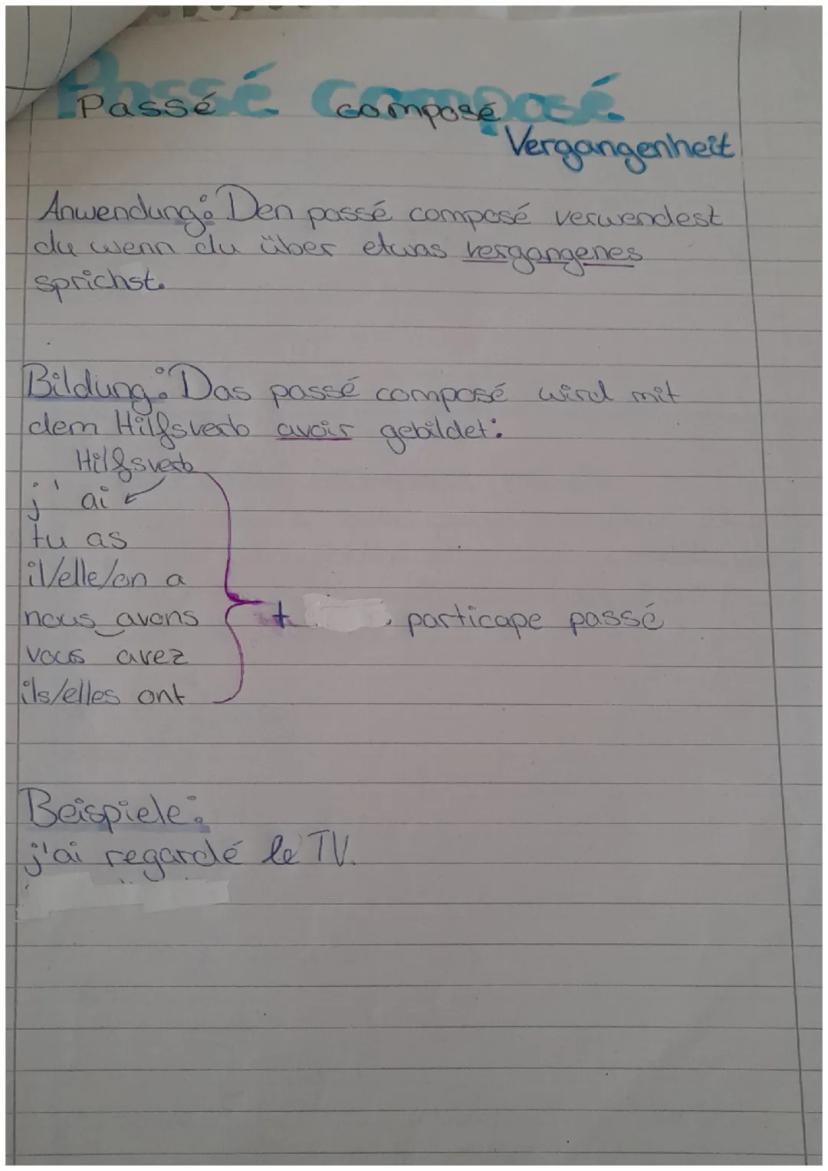 Passé composé
Passé composé
Vergangenheit
Anwendung: Den passé composé verwendest
du wenn du über etwas vergangenes
sprichst.
Bildung: Das passé composé wird mit
dem Hilfsverb avoir gebildet:
Hilfsverb
j' ai
tu as
il/elle/on a
nous avons + particape passé
vous avez
ils/elles ont
Beispiele:
j'ai regardé le TV.